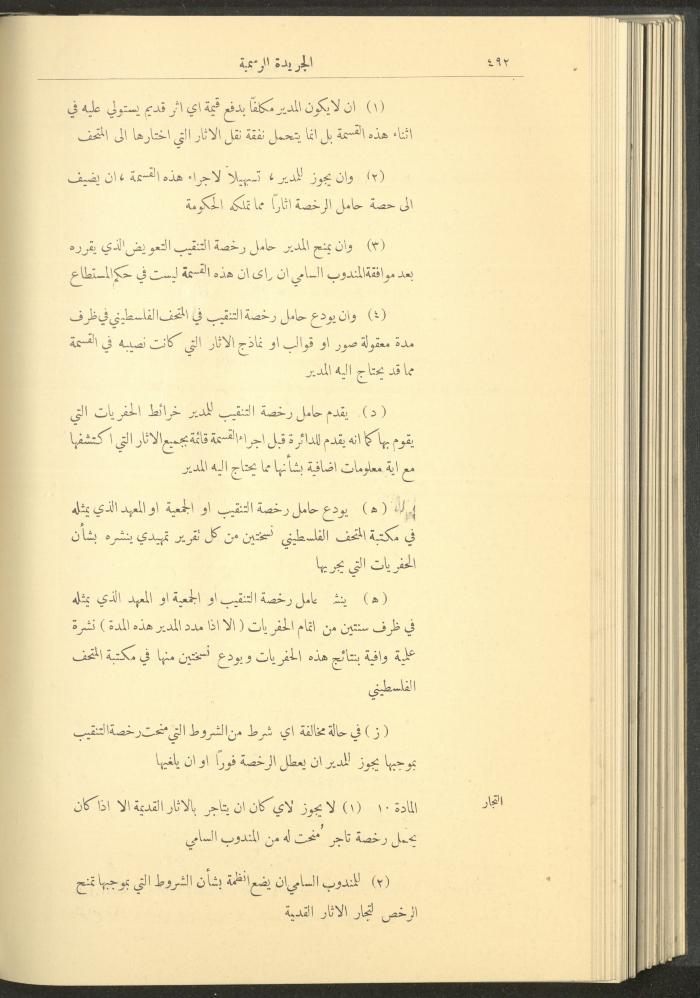 ٤٩٢ الجريدة الرسمية
(١) ان لا يكون المدير مكلفًا بدفع قيمة اي اثر قديم يستولي عليه في
اثناء هذه القسمة بل انما يتحمل نفقة نقل الاثار التي اختارها الى المتحف
(٢) وان يجوز للمدير ، تسهيلاً لاجراء هذه القسمة ، ان يضيف
الى حصة حامل الرخصة اثارًا مما تملكه الحكومة
(٣) وان يمنح المدير حامل رخصة التنقيب التعويض الذي يقرره
بعد موافقة المندوب السامي ان راى ان هذه القسمة ليست في حكم المستطاع
(٤) وان يودع حامل رخصة التنقيب في المتحف الفلسطيني في ظرف
مدة معقولة صور او قوالب او نماذج الاثار التي كانت نصيبه في القسمة
مما قد يحتاج اليه المدير
(د) يقدم حامل رخصة التنقيب للمدير خرائط الحفريات التي
يقوم بها كما انه يقدم للدائرة قبل اجراء القسمة قائمة بجميع الاثار التي اكتشفها
مع اية معلومات اضافية بشأنها مما يحتاج اليه المدير
(ه) يودع حامل رخصة التنقيب او الجمعية او المعهد الذي يمثله
في مكتبة المتحف الفلسطيني نسختين من كل تقرير تمهيدي ينشره بشأن
الحفريات التي يجريها
(ه) ينشر عامل رخصة التنقيب او الجمعية او المعهد الذي يمثله
في ظرف سنتين من اتمام الحفريات (الا اذا مدد المدير هذه المدة) نشرة
علمية وافية بنتائج هذه الحفريات ويودع نسختين منها في مكتبة المتحف
الفلسطيني
(ز) في حالة مخالفة اي شرط من الشروط التي منحت رخصة التنقيب
بموجبها يجوز للمدير ان يعطل الرخصة فورًا او ان يلغيها
التجار
المادة ١٠ (١) لا يجوز لاي كان ان يتاجر بالاثار القديمة الا اذا كان
يحمل رخصة تاجر مُنحت له من المندوب السامي
(٢) للمندوب السامي ان يضع انظمة بشأن الشروط التي بموجبها تمنح
الرخص لتجار الاثار القديمة